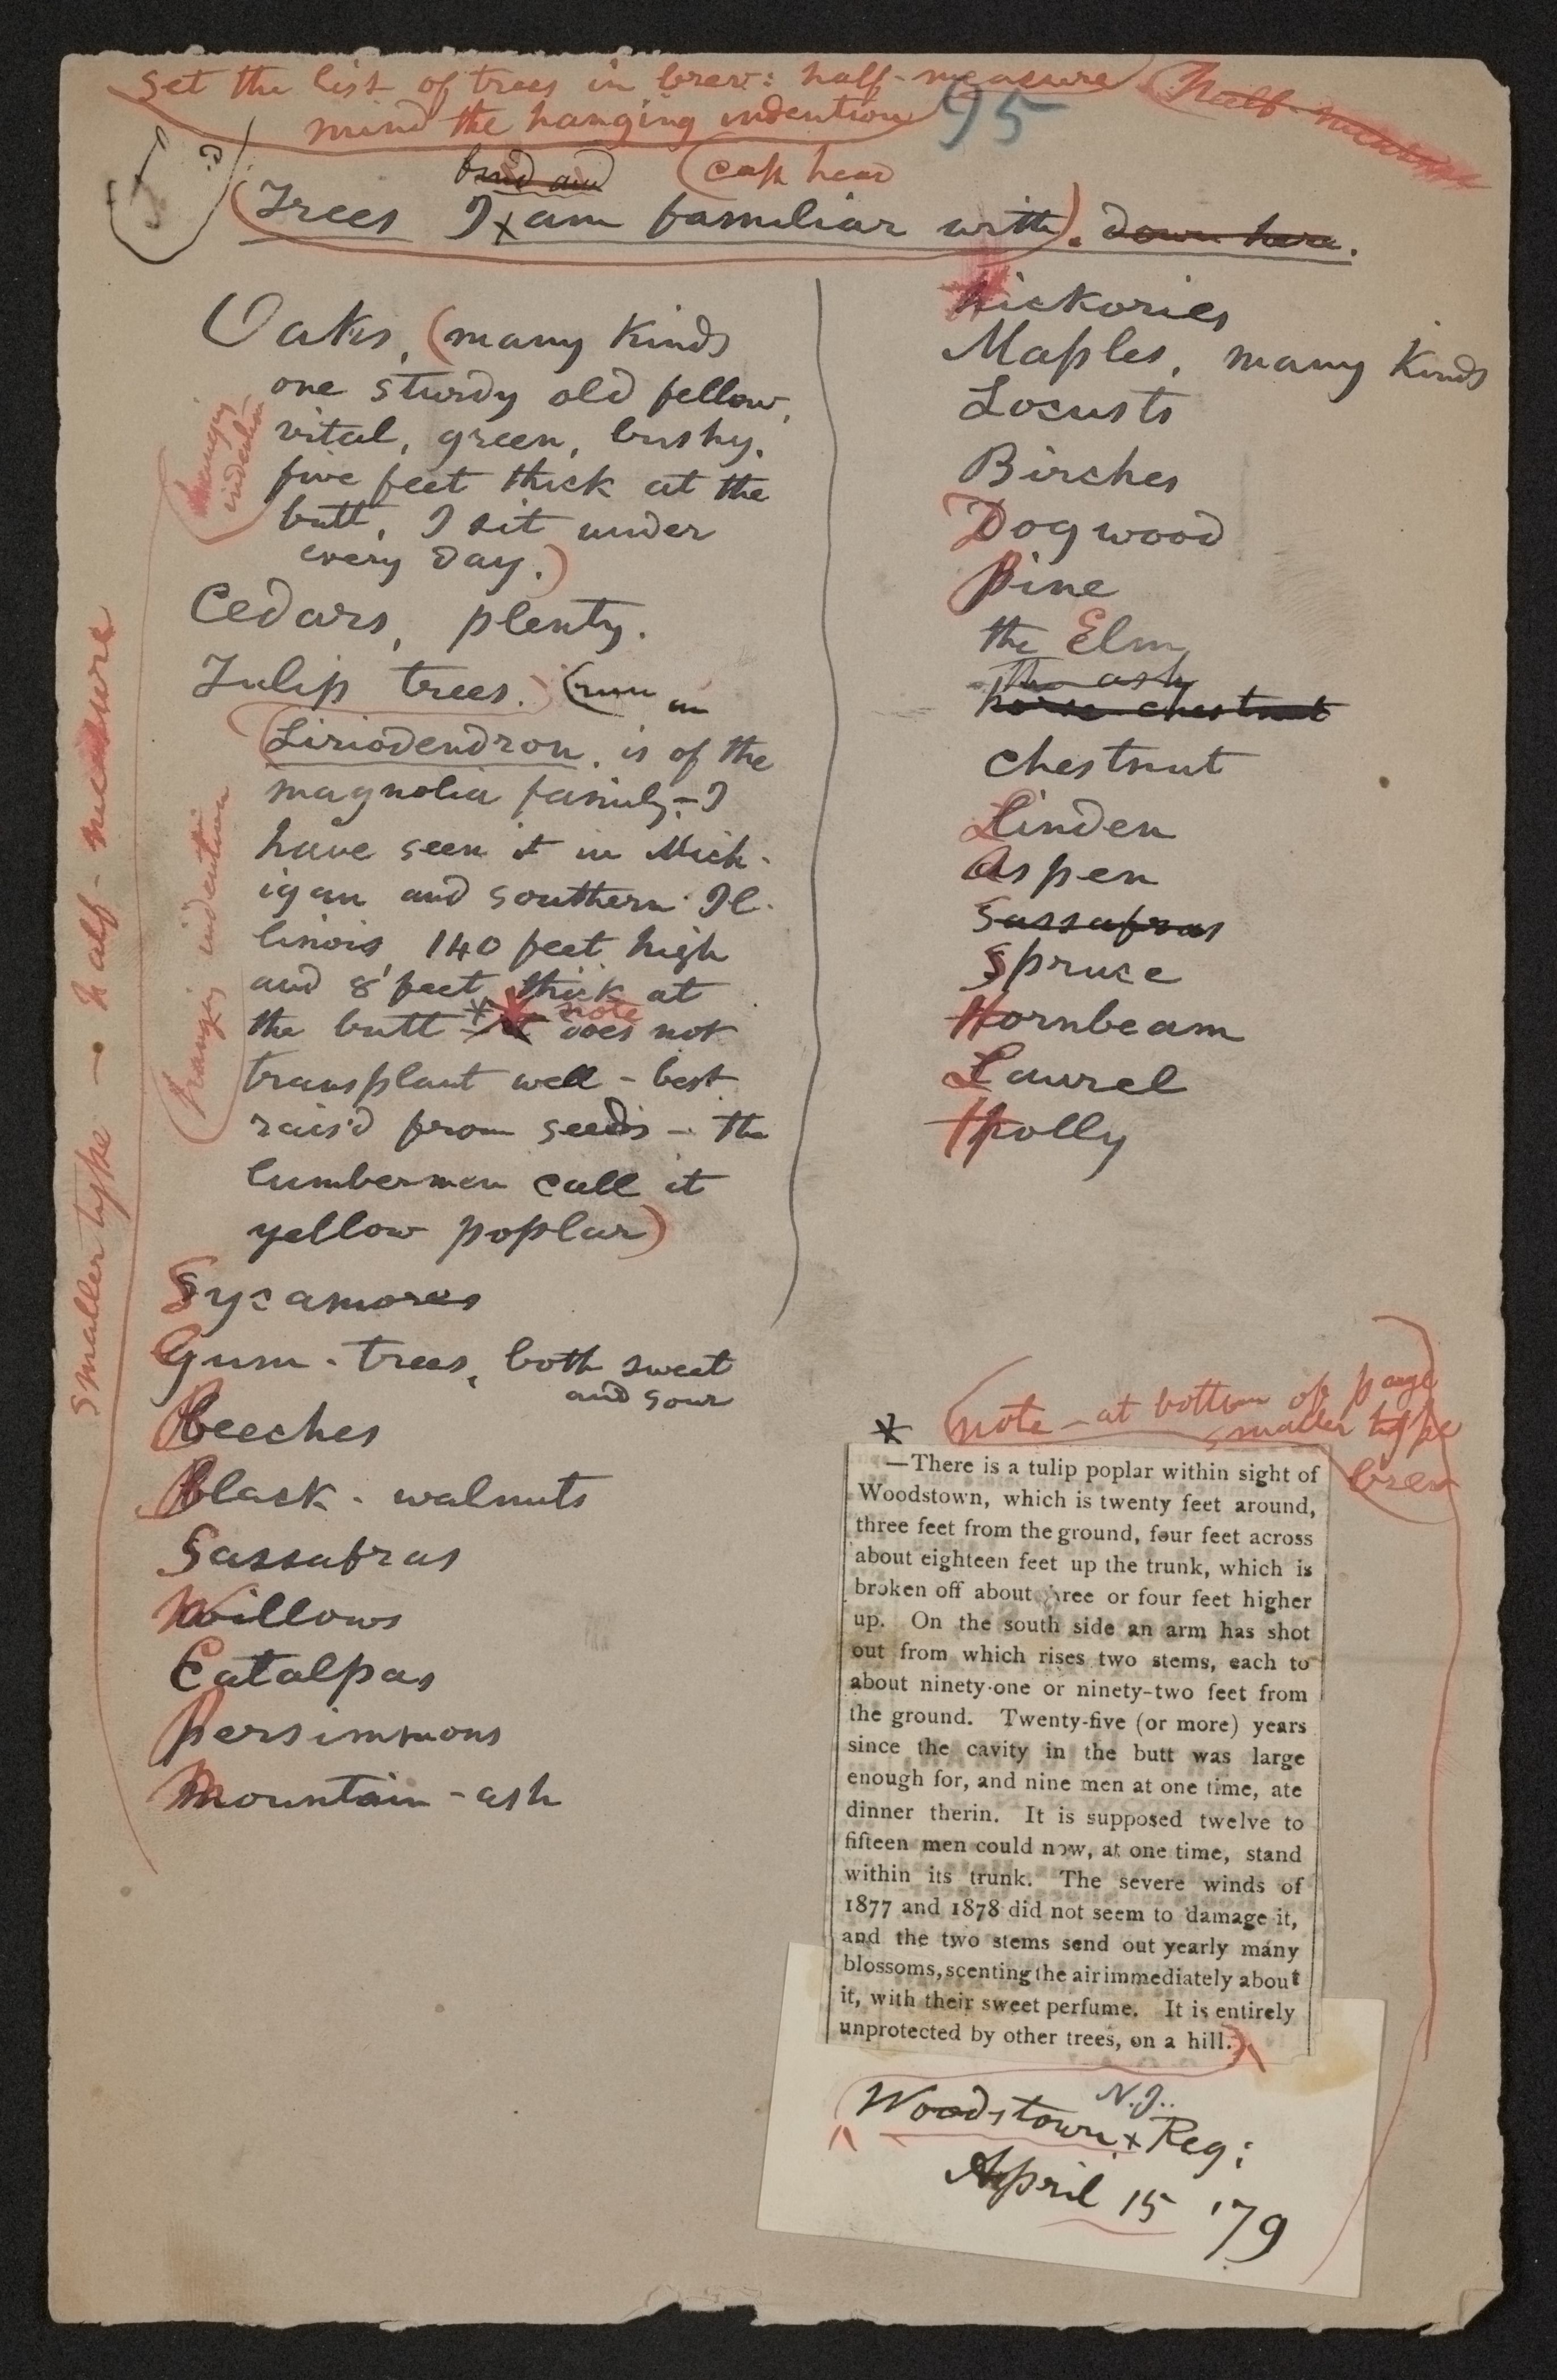 Set the list of trees in brev: half-measure
mind the hanging indention
half-measure
95
find and
cap head
Trees I am familiar with. down here.
Oaks, (many kinds
one sturdy old fellow,
vital, green, bushy,
five feet thick at the
butt, I sit under
every day.)
Cedars, plenty.
Tulip trees. (
Liriodendron, is of the
magnolia family—I
have seen it in Mich-
igan and southern Il-
linois, 140 feet high
and 8 feet thick at
the butt * note does not
transplant well - best
rais'd from seeds - the
lumbermen call it
yellow poplar)
Sycamores
Gum-trees, both sweet
and sour
Beeches
Black-walnuts
Sassafras
Willows
Catalpas
Persimmons
Mountain-ash
hanging
indention
hanging indention
smaller type — half-measure
Hickories
Maples, many kinds
Locusts
Birches
Dogwood
Pine
the Elm
The ash
horse-chestnut
Chestnut
Linden
Aspen
Sassafras
Spruce
Hornbeam
Laurel
Holly
note - at bottom of page
smaller type
brev
*
—There is a tulip poplar within sight of
Woodstown, which is twenty feet around,
three feet from the ground, four feet across
about eighteen feet up the trunk, which is
broken off about three or four feet higher
up. On the south side an arm has shot
out from which rises two stems, each to
about ninety-one or ninety-two feet from
the ground. Twenty-five (or more) years
since the cavity in the butt was large
enough for, and nine men at one time, ate
dinner therin. It is supposed twelve to
fifteen men could now, at one time, stand
within its trunk. The severe winds of
1877 and 1878 did not seem to damage it,
and the two stems send out yearly many
blossoms, scenting the air immediately about
it, with their sweet perfume. It is entirely
unprotected by other trees, on a hill.
N.J..
Woodstown x Reg:
April 15 '79